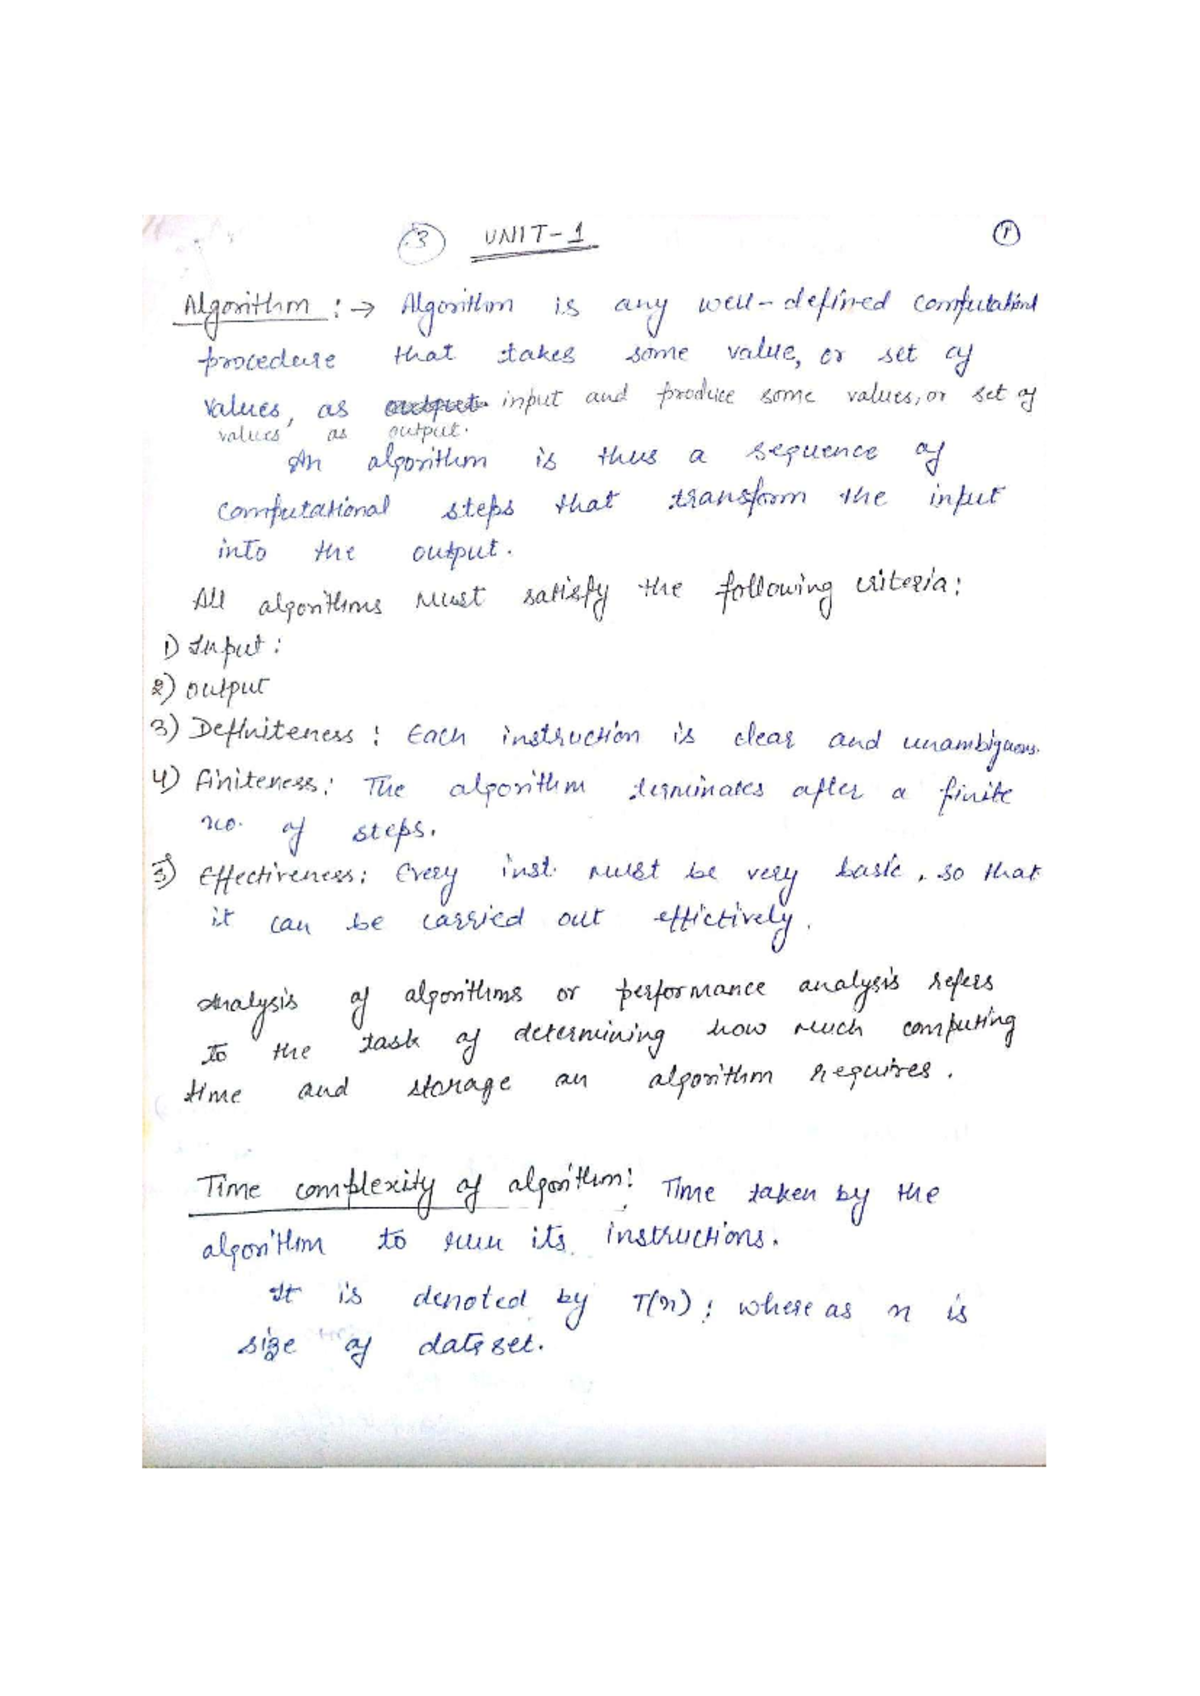 3 UNIT-1 1
Algorithm :→ Algorithm is any well-defined computational
procedure that takes some value, or set of
values, as output input and produce some values, or set of
values as output.
An algorithm is thus a sequence of
computational steps that transform the input
into the output.
All algorithms must satisfy the following criteria:
1) Input:
2) output
3) Definiteness: Each instruction is clear and unambiguous.
4) Finiteness: The algorithm terminates after a finite
no. of steps.
5) Effectiveness: Every inst. must be very basic, so that
it can be carried out effictively.
Analysis of algorithms or performance analysis refers
to the task of determining how much computing
time and storage an algorithm requires.
Time complexity of algorithm: Time taken by the
algorithm to run its instructions.
It is denoted by T(n); where as n is
size of dataset.